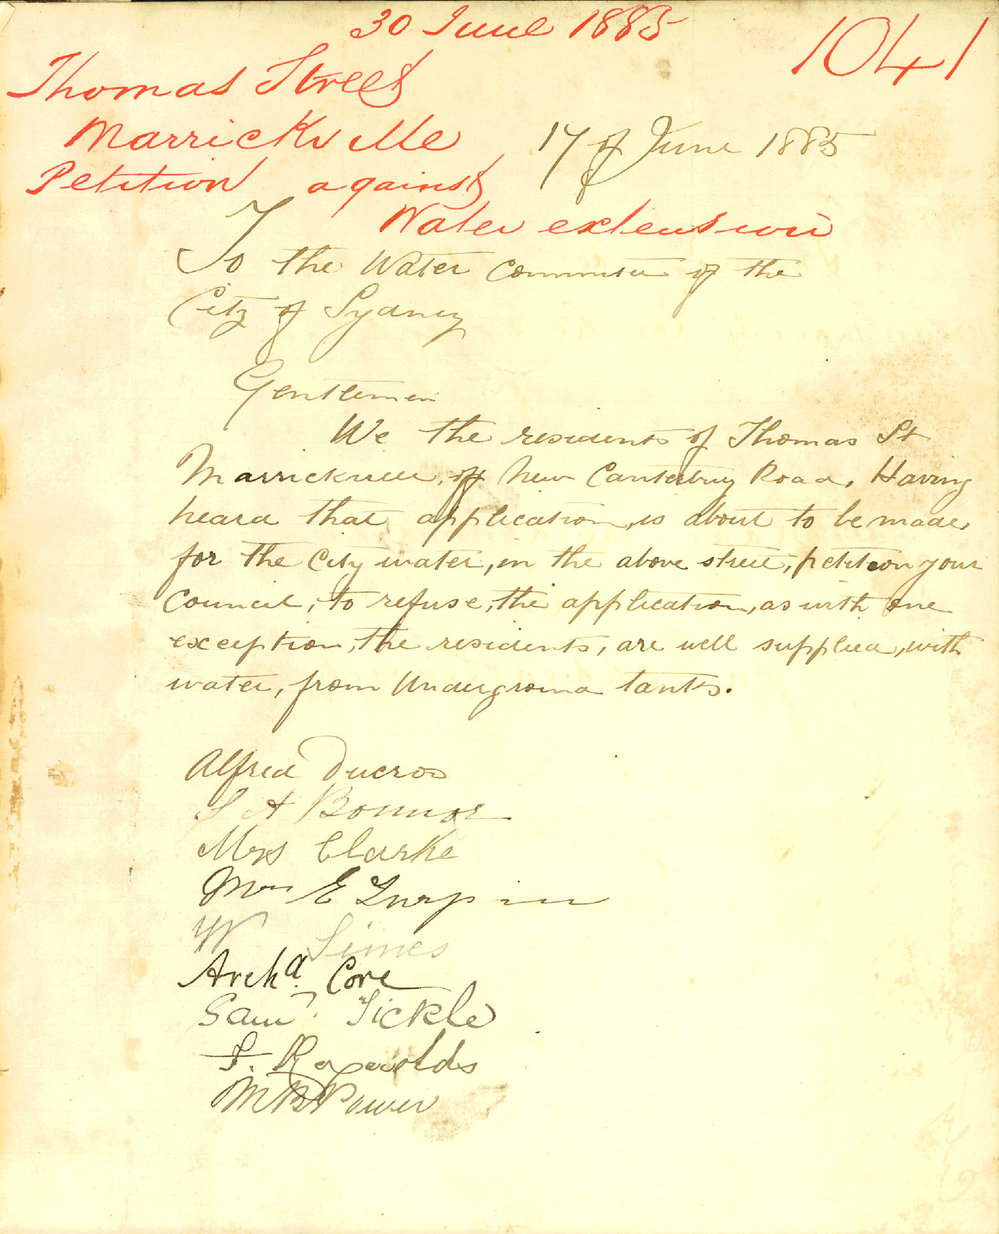 30 June 1885
1041
Thomas Street
Marrickville
Petition against
Water extension
17 of June 1885
To the Water Committee of the
City of Sydney
Gentlemen
We the residents of Thomas St
Marrickville, off New Canterbury Road. Having
heard that application, is about to be made
for the City water, in the above street, petition your
Council, to refuse, the application, as with one
exception, the residents, are well supplied, with
water, from Underground tanks.
Alfred Ducros
S A Bonnor
Mrs Clarke
Mrs E Turpin
W Simes
Archd. Core
Saml. Tickle
Reynolds
Power